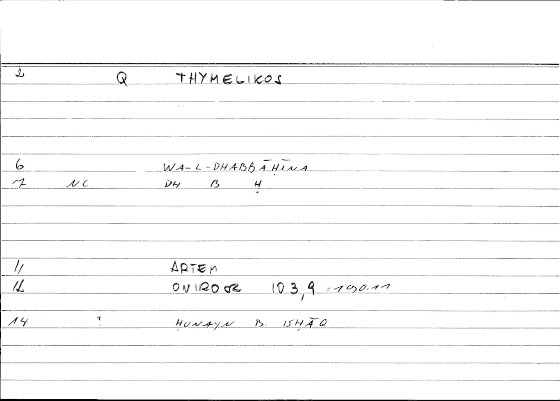 2 Q THYMELIKOS
6 WA-L-DHABBĀḤĪNA
7 NC DH B Ḥ
11 ARTEM
12 ONIROCR 103,9 = 190.11
14 ? ḤUNAYN B. ISḤĀQ